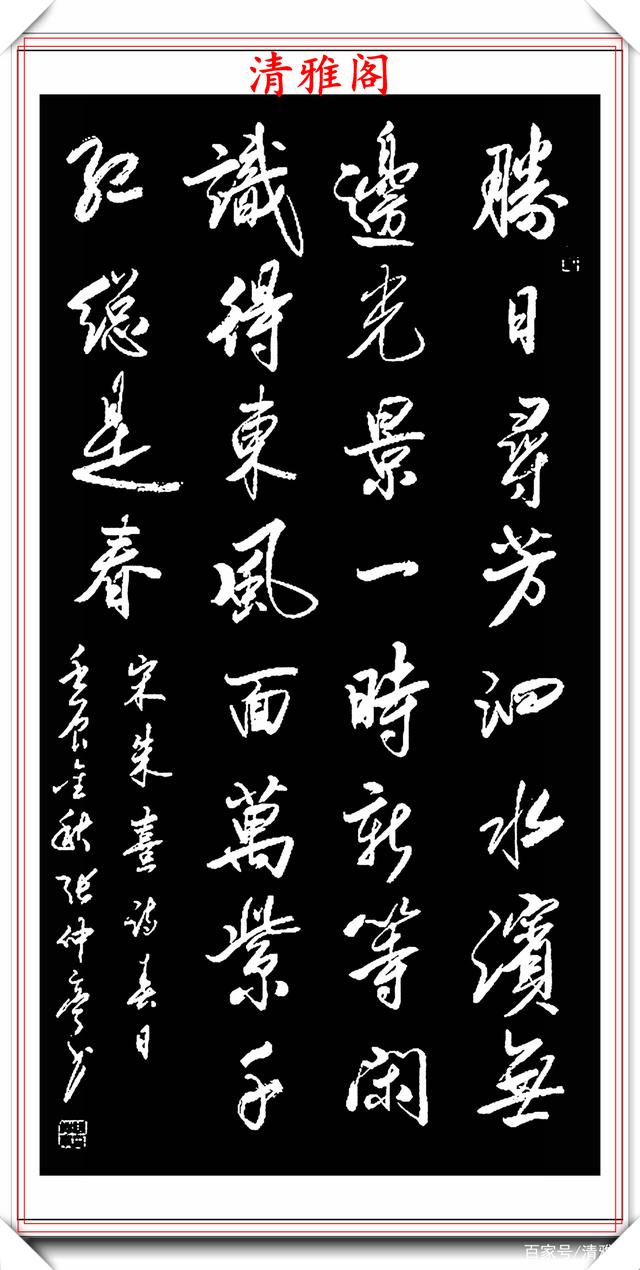 清雅阁
勝日尋芳泗水濱無
邊光景一時新等閑
識得東風面萬紫千
紅總是春
宋朱熹詩春日
壬辰金秋張仲亭书
百家号/清雅